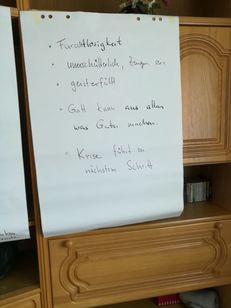 • Furchtlosigkeit
• unerschütterlich, Zeugen sein
• geisterfüllt
• Gott kann aus allem
was Gutes machen.
• Krise führt zu
nächstem Schritt